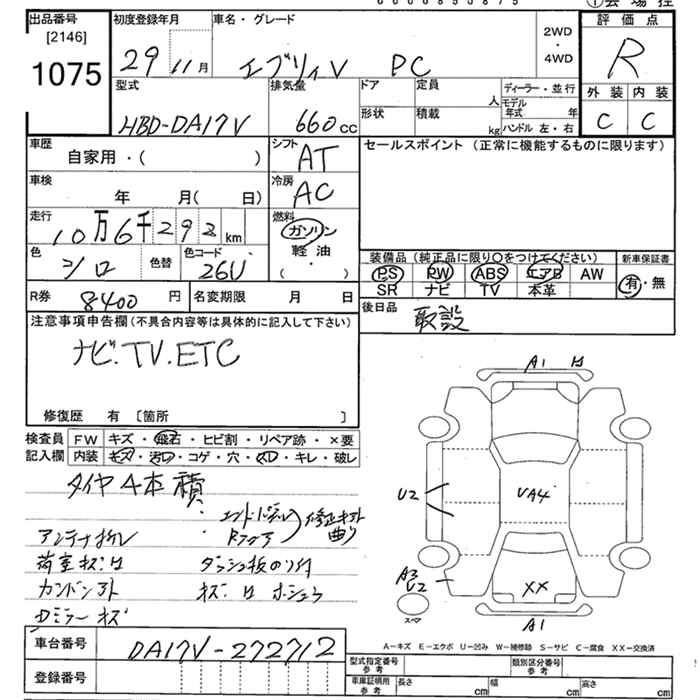 出品番号 初度登録年月 車名・グレード 2WD・4WD 評価点
[2146]
1075 29 11月 エブリィV PC R
型式 排気量 ドア 定員 人 ディーラー・並行 外装 内装
HBD-DA17V 660cc 形状 積載 kg モデル年式 年 ハンドル 左・右 C C
車歴 シフト セールスポイント (正常に機能するものに限ります)
自家用・( ) AT
車検 冷房
年 月( 日) AC
走行 燃料
10万6千292km ガソリン
軽油・( )
色 色替 色コード 装備品 (純正品に限り○をつけてください) 新車保証書
シロ 26U PS PW ABS エアB AW 有・無
SR ナビ TV 本革
R券 8400円 名変期限 月 日 後日品 取説
注意事項申告欄(不具合内容等は具体的に記入して下さい)
ナビ.TV.ETC
修復歴 有 [箇所 ]
検査員 FW キズ・飛石・ヒビ割・リペア跡・×要
記入欄 内装 キズ・汚れ・コゲ・穴・スレ・キレ・破レ
タイヤ4本積
アンテナ折レ
荷室キズ・凹
Dミラーキズ
A1
U2 UA4
A3
U2 XX
スペア
A1
車台番号 DA17V-272712
A-キズ E-エクボ U-凹み W-補修跡 S-サビ C-腐食 XX-交換済
登録番号 型式指定番号 参考 類別区分番号 参考
車庫証明用 参考 長さ cm 幅 cm 高さ cm